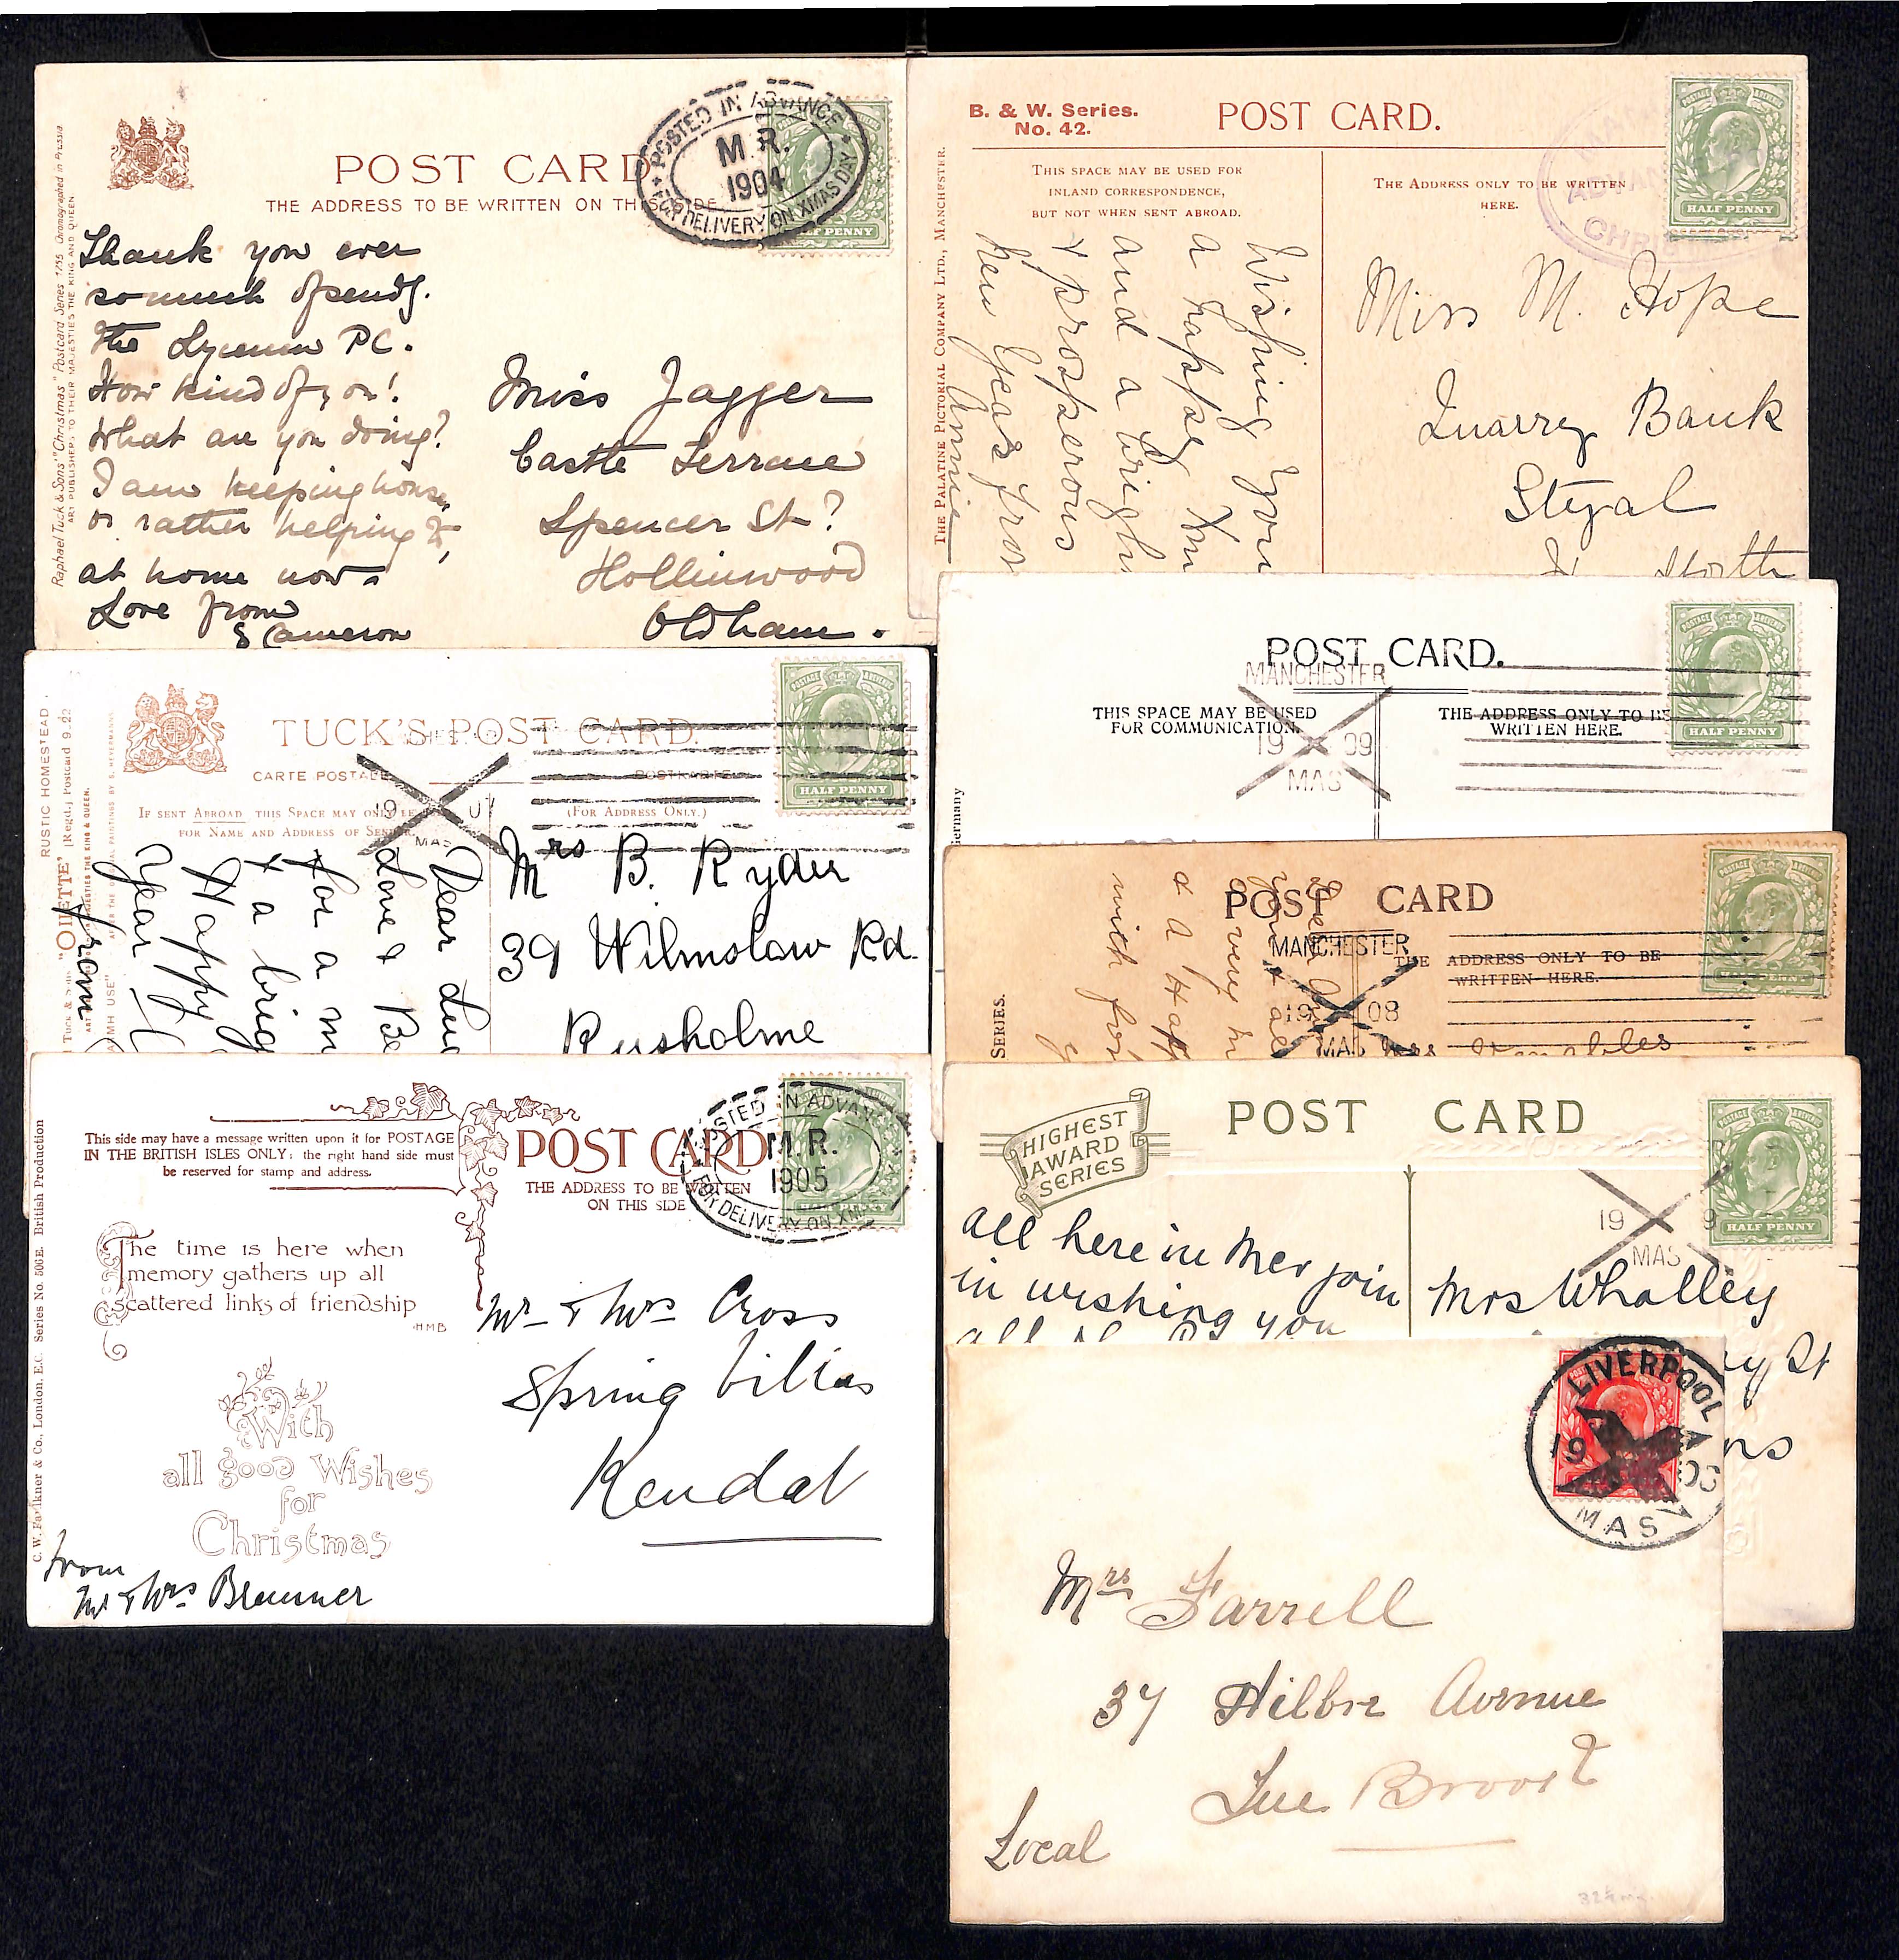 POST CARD
THE ADDRESS TO BE WRITTEN ON THIS SIDE
POSTED IN ADVANCE
M.R.
1904
FOR DELIVERY ON XMAS DAY
HALF PENNY
Raphael Tuck & Sons' "Christmas" Postcard Series 1755 Chromographed in Prussia
ART PUBLISHERS TO THEIR MAJESTIES THE KING AND QUEEN
Thank you ever
so much of sendg.
the Lyceum PC.
How kind of you!
What are you doing?
I am keeping house,
or rather helping to,
at home now.
Love from
S Cameron
Miss Jagger
Castle Terrace
Spencer St?
Hollinwood
Oldham.
B. & W. Series.
No. 42.
POST CARD.
THIS SPACE MAY BE USED FOR
INLAND CORRESPONDENCE,
BUT NOT WHEN SENT ABROAD.
THE ADDRESS ONLY TO BE WRITTEN
HERE.
POSTAGE REVENUE
HALF PENNY
THE PALATINE PICTORIAL COMPANY LTD., MANCHESTER.
Wishing you
a happy Xm
and a brigh
& prosperous
New Year from
Annie
Miss M. Hope
Quarry Bank
Styal
TUCK'S POST CARD.
CARTE POSTALE
POSTKARTE
IF SENT ABROAD THIS SPACE MAY ONLY BE
FOR NAME AND ADDRESS OF SENDER.
(FOR ADDRESS ONLY.)
19 07
MAS
POSTAGE REVENUE
HALF PENNY
RUSTIC HOMESTEAD
"OILETTE" [Regd.] Postcard 9.22
Dear
Love & Be
for a m
& a brig
Happy
Year
from
Mrs B. Ryder
39 Wilmslow Rd.
Rusholme
POST CARD.
MANCHESTER
THIS SPACE MAY BE USED
FOR COMMUNICATION.
THE ADDRESS ONLY TO BE
WRITTEN HERE.
19 09
MAS
POSTAGE REVENUE
HALF PENNY
Germany
POST CARD
MANCHESTER
THE ADDRESS ONLY TO BE
WRITTEN HERE.
19 08
MAS
SERIES.
& a Happ
with
This side may have a message written upon it for POSTAGE
IN THE BRITISH ISLES ONLY: the right hand side must
be reserved for stamp and address.
POST CARD
THE ADDRESS TO BE WRITTEN
ON THIS SIDE
POSTED IN ADVANCE
M.R.
1905
FOR DELIVERY ON XMAS
The time is here when
memory gathers up all
scattered links of friendship
HMB
With
all good Wishes
for
Christmas
C. W. Faulkner & Co., London, E.C. Series No. 506E. British Production
Mr & Mrs Cross
Spring Villas
Kendal
From
Mr & Mrs Brunner
HIGHEST
AWARD
SERIES
POST CARD
19 9
MAS
POSTAGE REVENUE
HALF PENNY
all here in Mcr join
in wishing you
Mrs Whalley
LIVERPOOL
19
MAS
Mrs Farrell
37 Hilbre Avenue
Tue Brook
Local